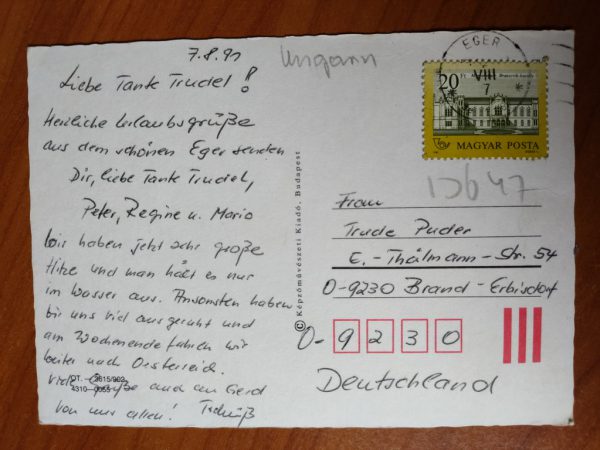 7.8.91
Ungarn
Liebe Tante Trudel!
Herzliche Urlaubsgrüße
aus dem schönen Eger senden
Dir, liebe Tante Trudel,
Peter, Regine u. Mario
Wir haben jetzt sehr große
Hitze und man hält es nur
im Wasser aus. Ansonsten haben
wir uns viel ausgeruht und
am Wochenende fahren wir
weiter nach Österreich.
Viele Grüße auch an Gerd
von uns allen! Tschüß
QT. — 2615/902
4310—0055
© Képzőművészeti Kiadó, Budapest
EGER
VIII
7
20 Ft
MAGYAR POSTA
Frau
Trude Puder
E.-Thälmann-Str. 54
O-9230 Brand-Erbisdorf
O-9230
Deutschland